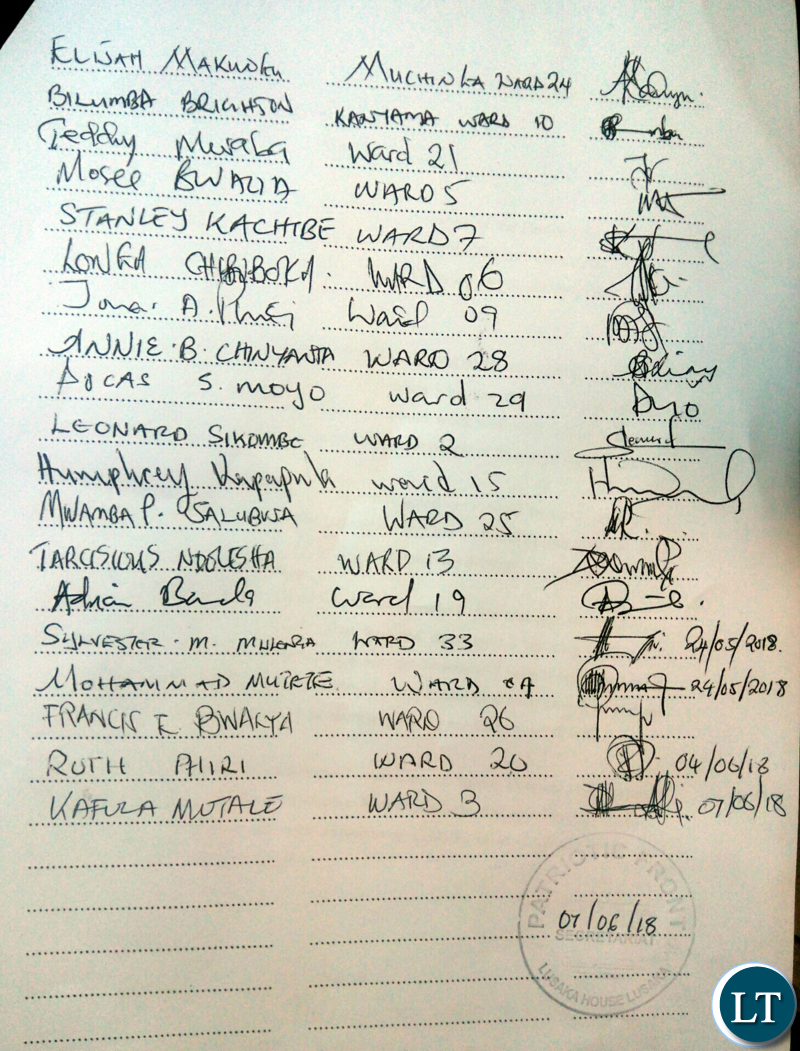 ELIJAH MAKUNKU MUCHINKA WARD 24
BILUMBA BRIGHTON KANYAMA WARD 10
Teddy Mwaba Ward 21
Moses BWALYA WARD 5
STANLEY KACHIBE WARD 7
LONGA WARD 06
A. Ward 09
ANNIE B. CHINYANTA WARD 28
DOCAS S. MOYO ward 29
LEONARD SIKOMBE WARD 2
Humphrey Kapapula ward 15
MWAMBA P. SALUBUSA WARD 25
TARCISIOUS NDOLESHA WARD 13
Adrian Banda Ward 19
SYLVESTER M. MULENGA WARD 33 24/05/2018.
MOHAMMAD MUTETE WARD 24/05/2018
FRANCIS BWALYA WARD 26
RUTH PHIRI WARD 20 04/06/18
KAFULA MUTALE WARD 3 07/06/18
PATRIOTIC FRONT
07/06/18
SECRETARIAT
LUSAKA HOUSE LUSAKA
LT